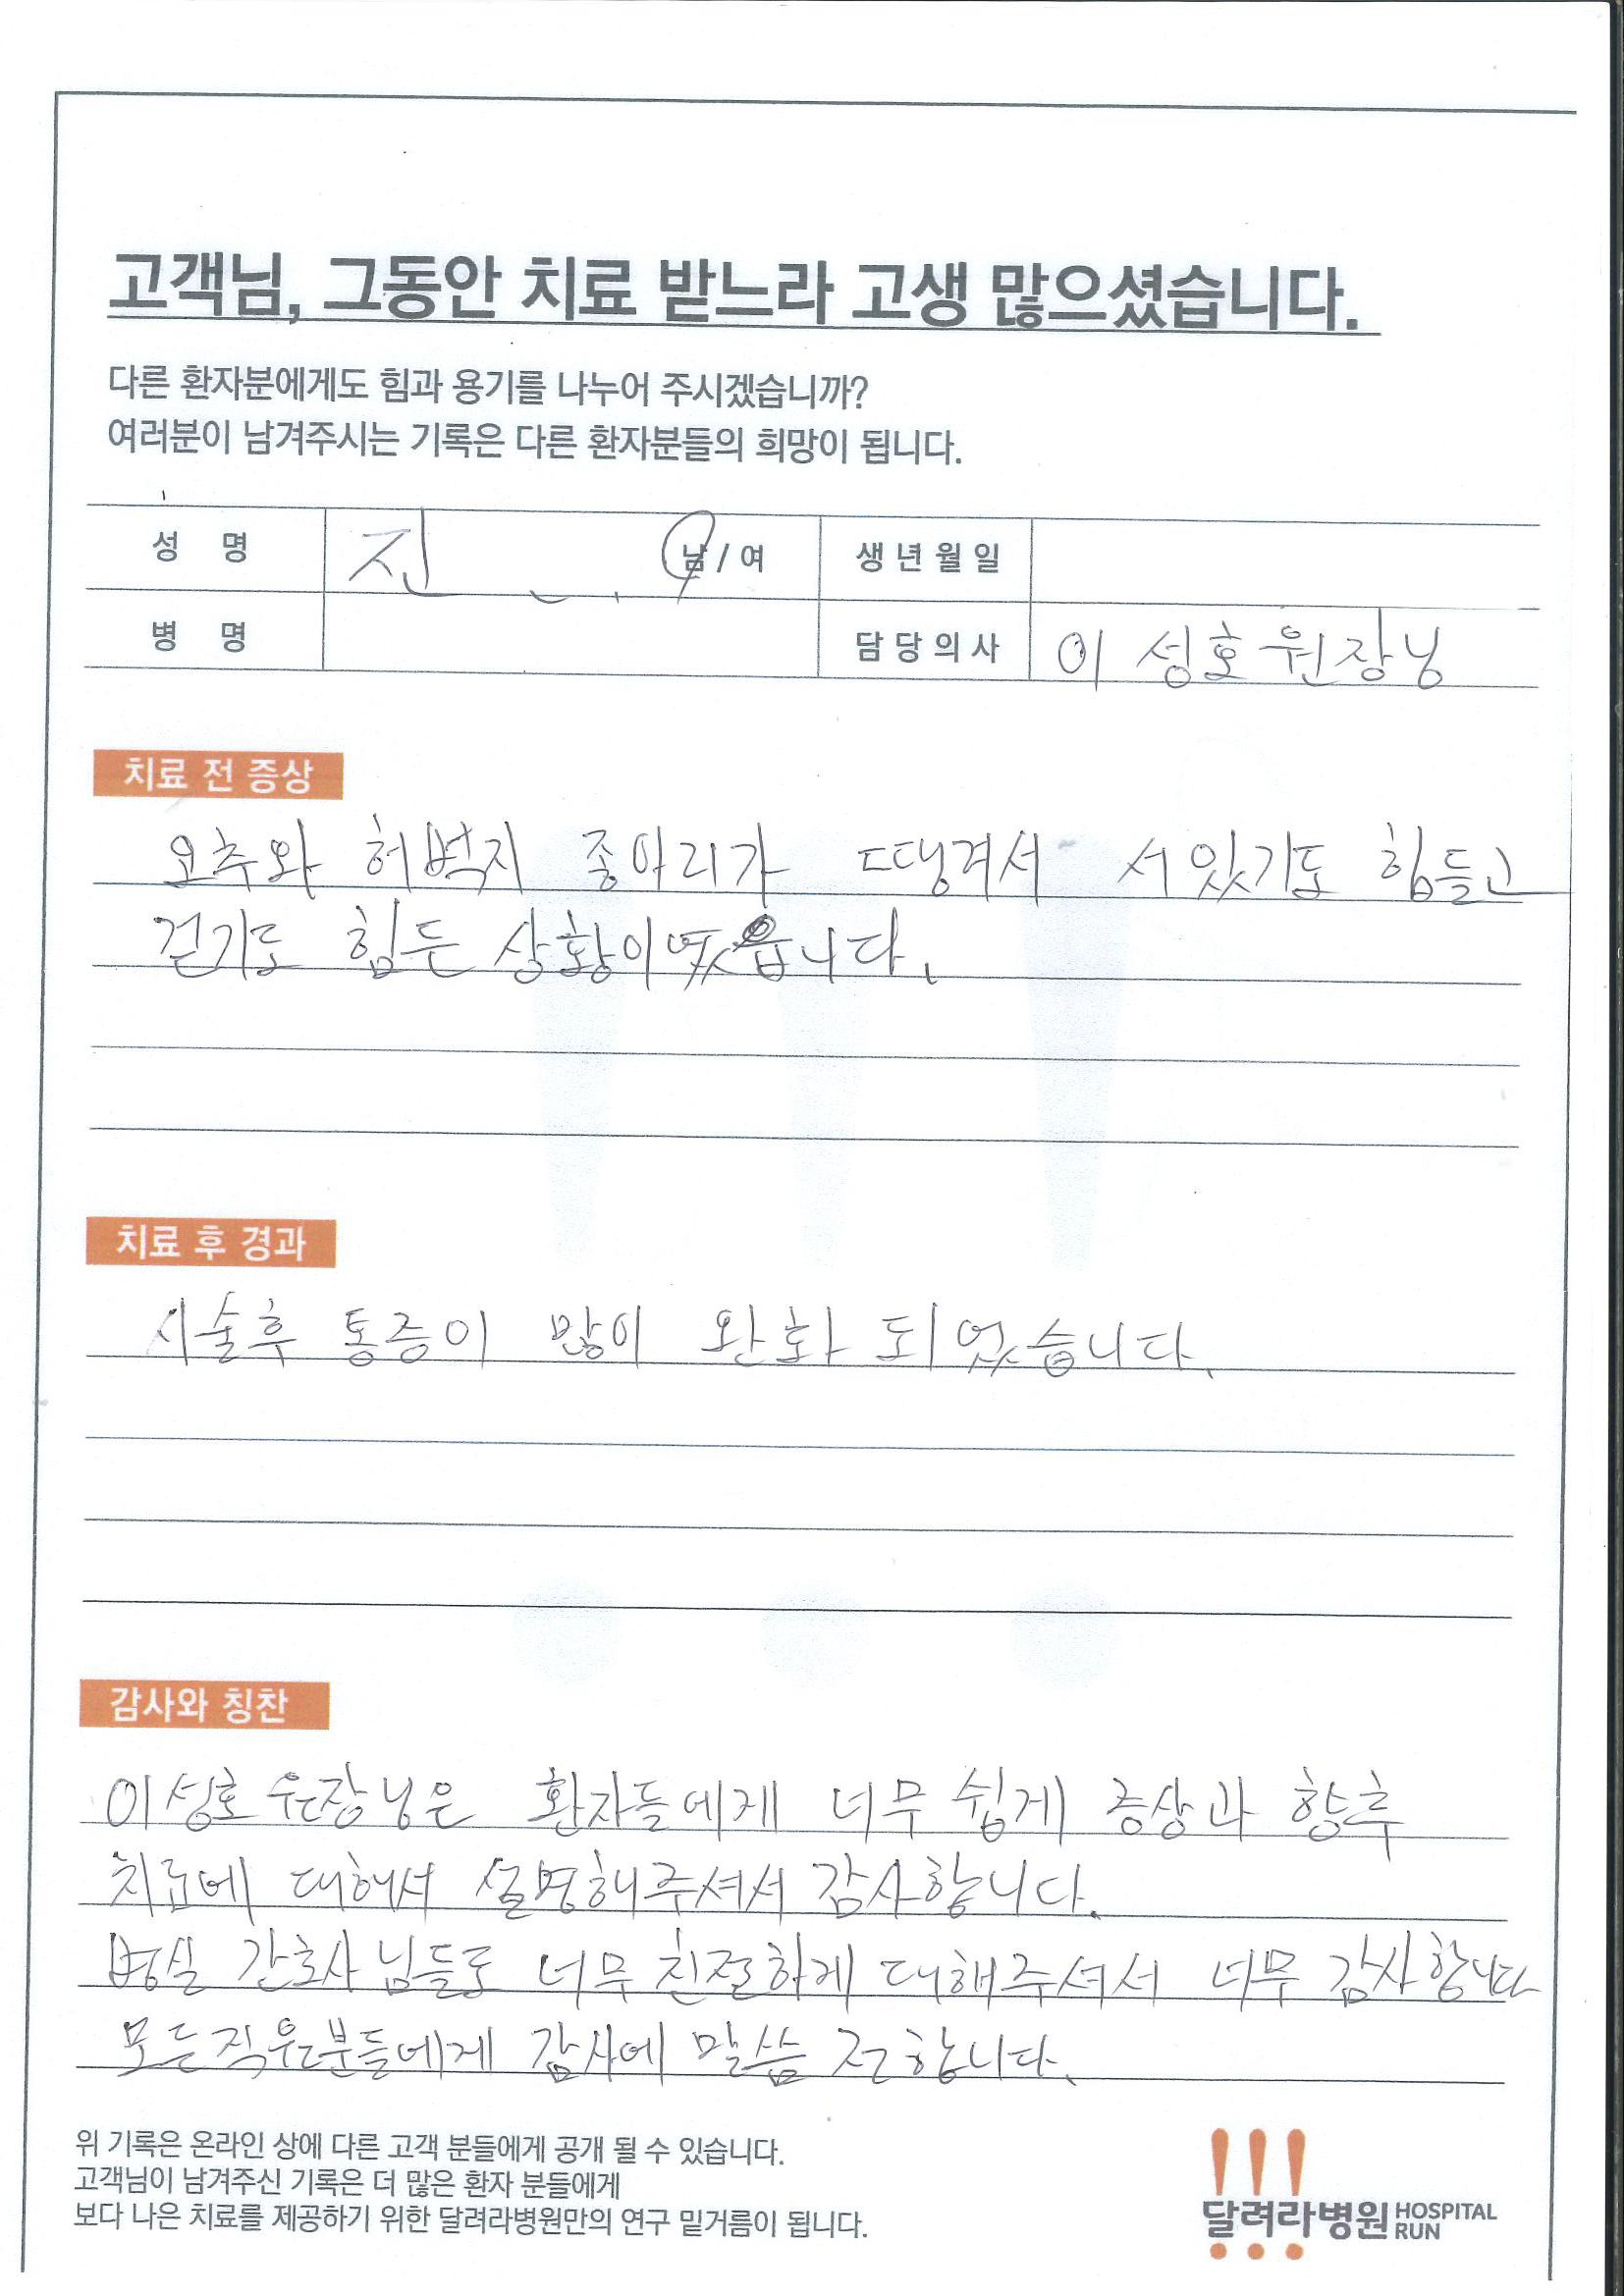 고객님, 그동안 치료 받느라 고생 많으셨습니다.
다른 환자분에게도 힘과 용기를 나누어 주시겠습니까?
여러분이 남겨주시는 기록은 다른 환자분들의 희망이 됩니다.
성 명 진 남/여 생년월일
병 명 담당의사 이성호원장님
치료 전 증상
요추와 허벅지 종아리가 땡겨서 서있기도 힘들고
걷기도 힘든 상황이였읍니다.
치료 후 경과
시술후 통증이 많이 완화 되었습니다.
감사와 칭찬
이성호 원장님은 환자들에게 너무 쉽게 증상과 향후
치료에 대해서 설명해주셔서 감사합니다.
병실 간호사님들도 너무 친절하게 대해주셔서 너무 감사합니다
모든직원분들에게 감사에 말씀 전합니다.
위 기록은 온라인 상에 다른 고객 분들에게 공개 될 수 있습니다.
고객님이 남겨주신 기록은 더 많은 환자 분들에게
보다 나은 치료를 제공하기 위한 달려라병원만의 연구 밑거름이 됩니다.
달려라병원 HOSPITAL RUN